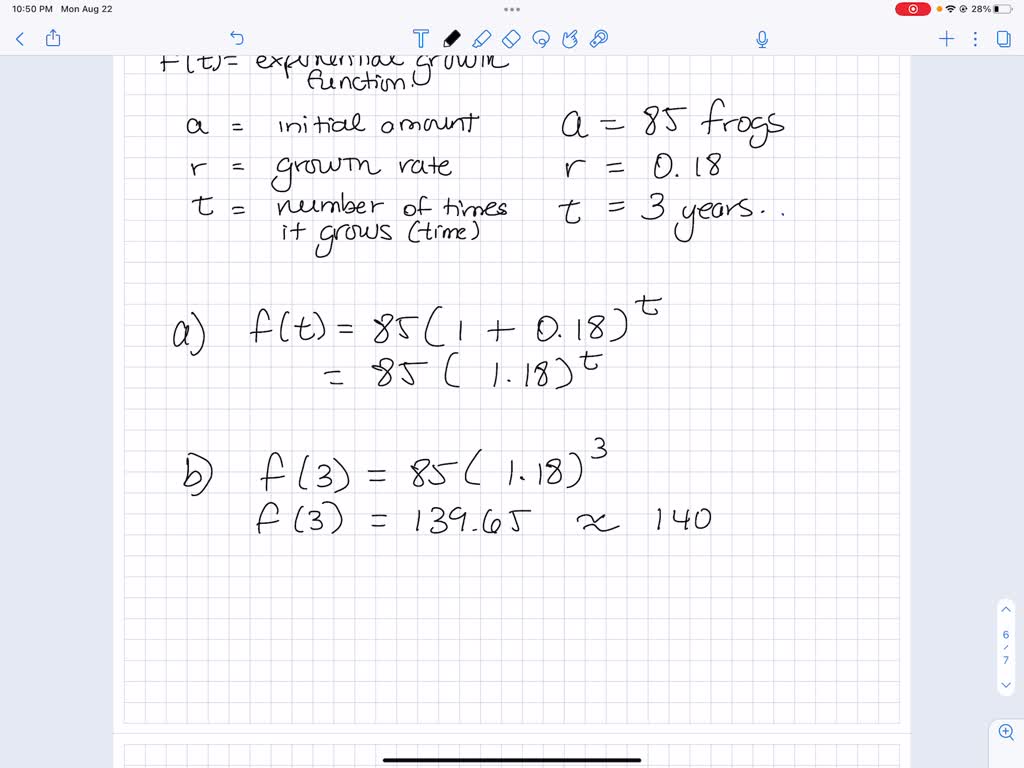 10:50 PM Mon Aug 22
28%
f(t) = exponential growth
function.
a = initial amount a = 85 frogs
r = growth rate r = 0.18
t = number of times t = 3 years..
it grows (time)
a) f(t) = 85(1 + 0.18)^t
= 85(1.18)^t
b) f(3) = 85(1.18)^3
f(3) = 139.65 ≈ 140
6
/
7